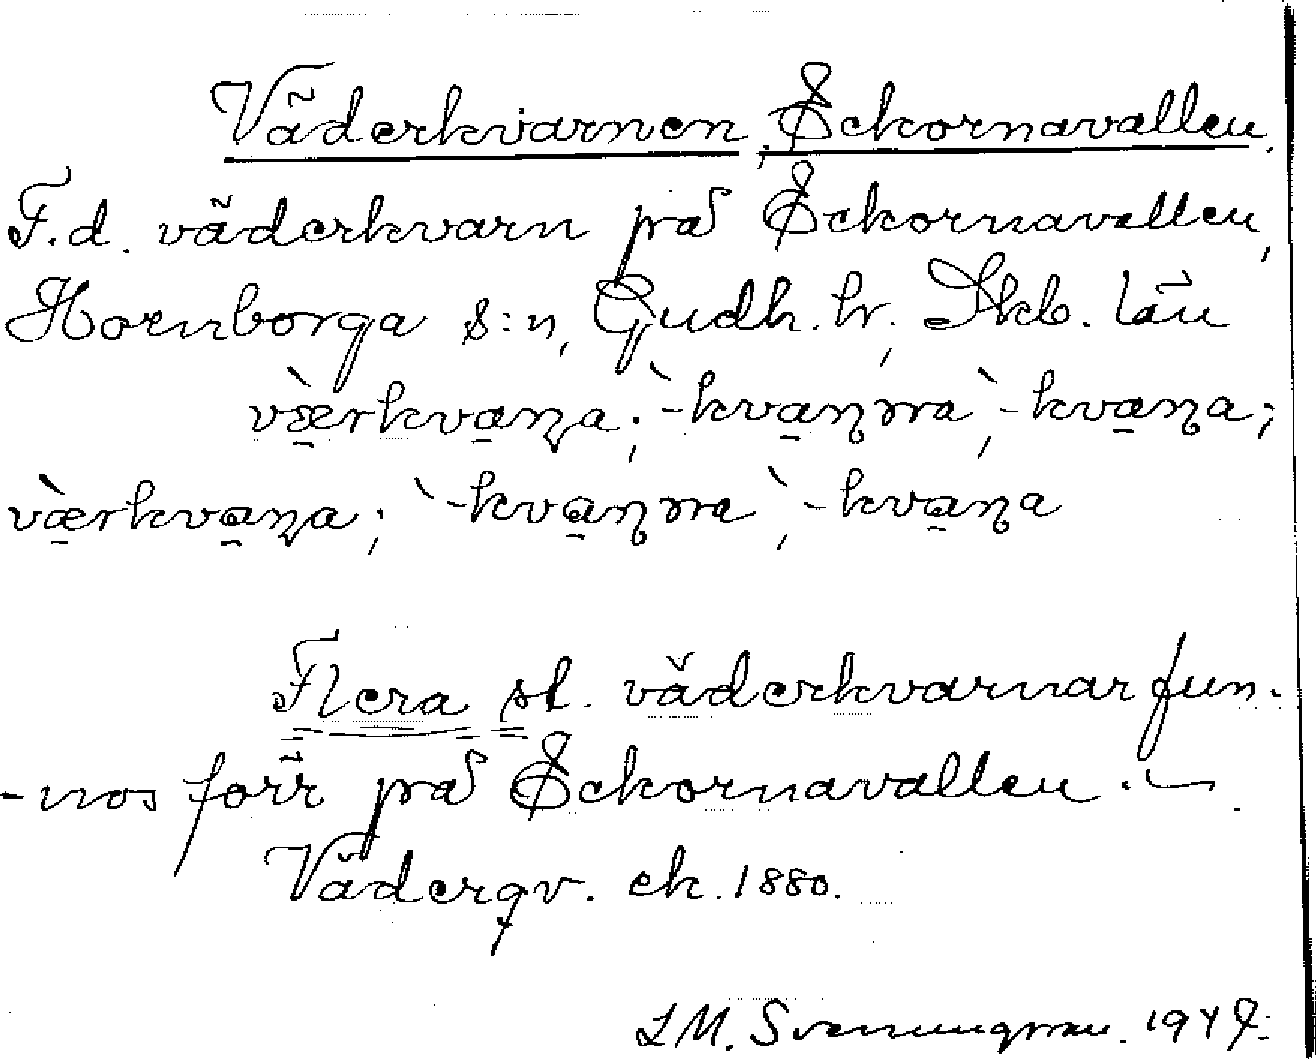 Väderkvarnen, Ekornavallen.
F.d. väderkvarn på Ekornavallen,
Hornborga s:n, Gudh. hr, Skb. län
væ̀rkvaṇa; `-kvaṇṇa, `-kvaṇa;
væ̀rkvaṇa; `-kvaṇṇa, `-kvaṇa
Flera st. väderkvarnar fun-
-nos förr på Ekornavallen.
Väderqv. ek. 1880.
L M. Svenungsson. 1947.